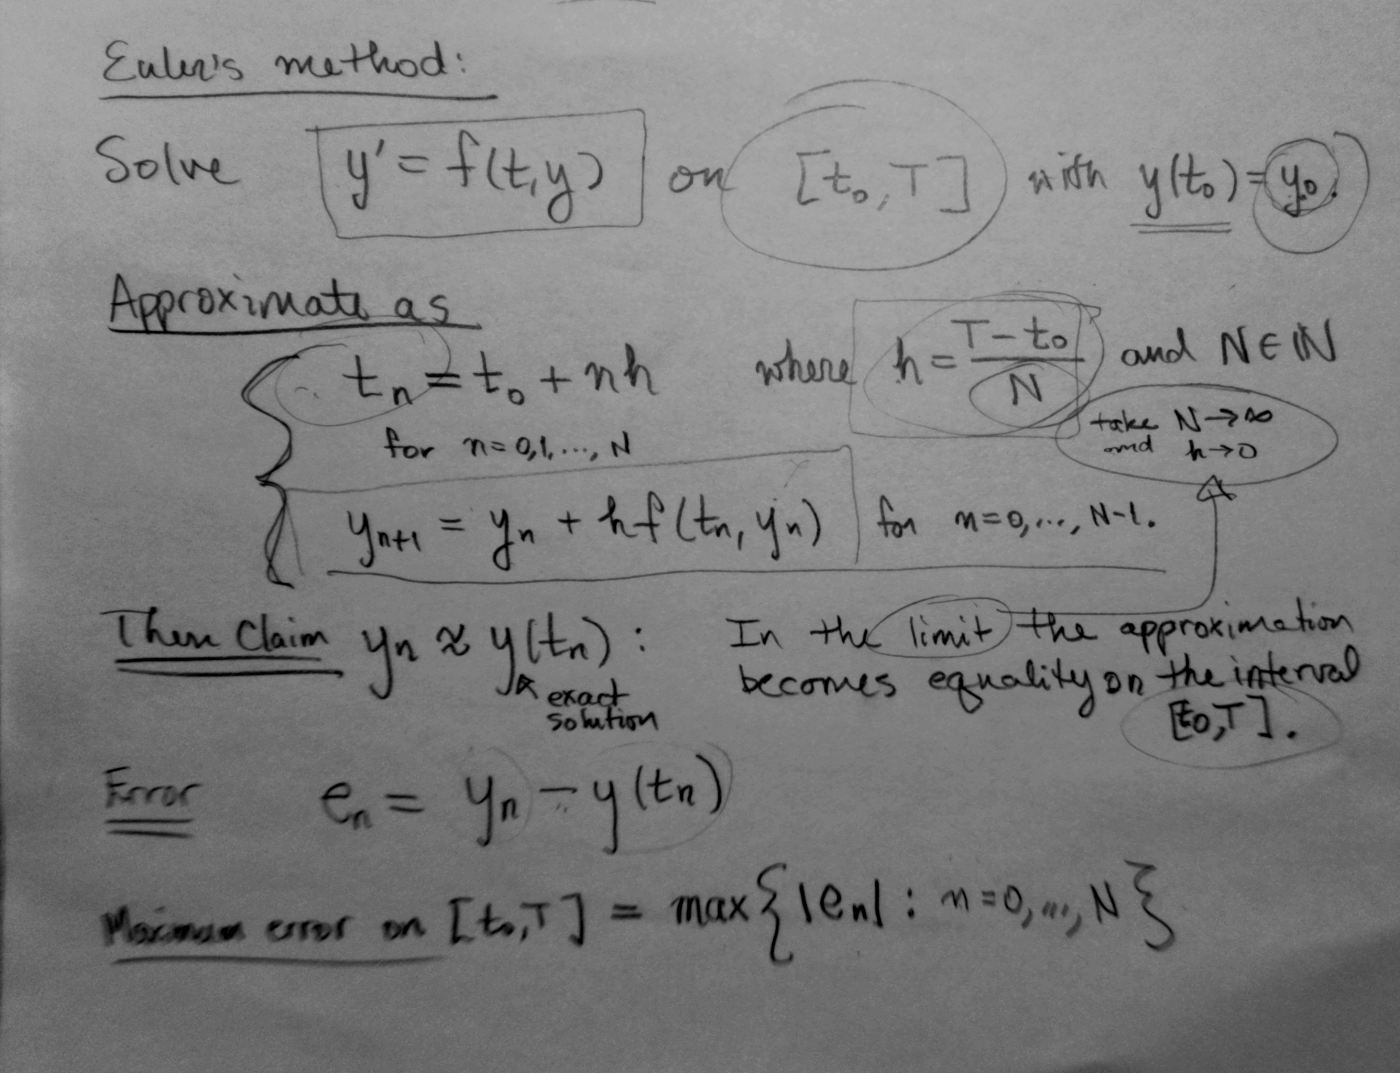 Euler's method:
Solve y' = f(t,y) on [t₀,T] with y(t₀)=y₀.
Approximate as
tₙ = t₀ + nh where h = (T-t₀)/N and N∈ℕ
for n=0,1,...,N
take N→∞
and h→0
yₙ₊₁ = yₙ + hf(tₙ,yₙ) for n=0,...,N-1.
Then Claim yₙ ≈ y(tₙ): In the limit the approximation
becomes equality on the interval
exact
solution
[t₀,T].
Error eₙ = yₙ - y(tₙ)
Maximum error on [t₀,T] = max{|eₙ| : n=0,...,N}